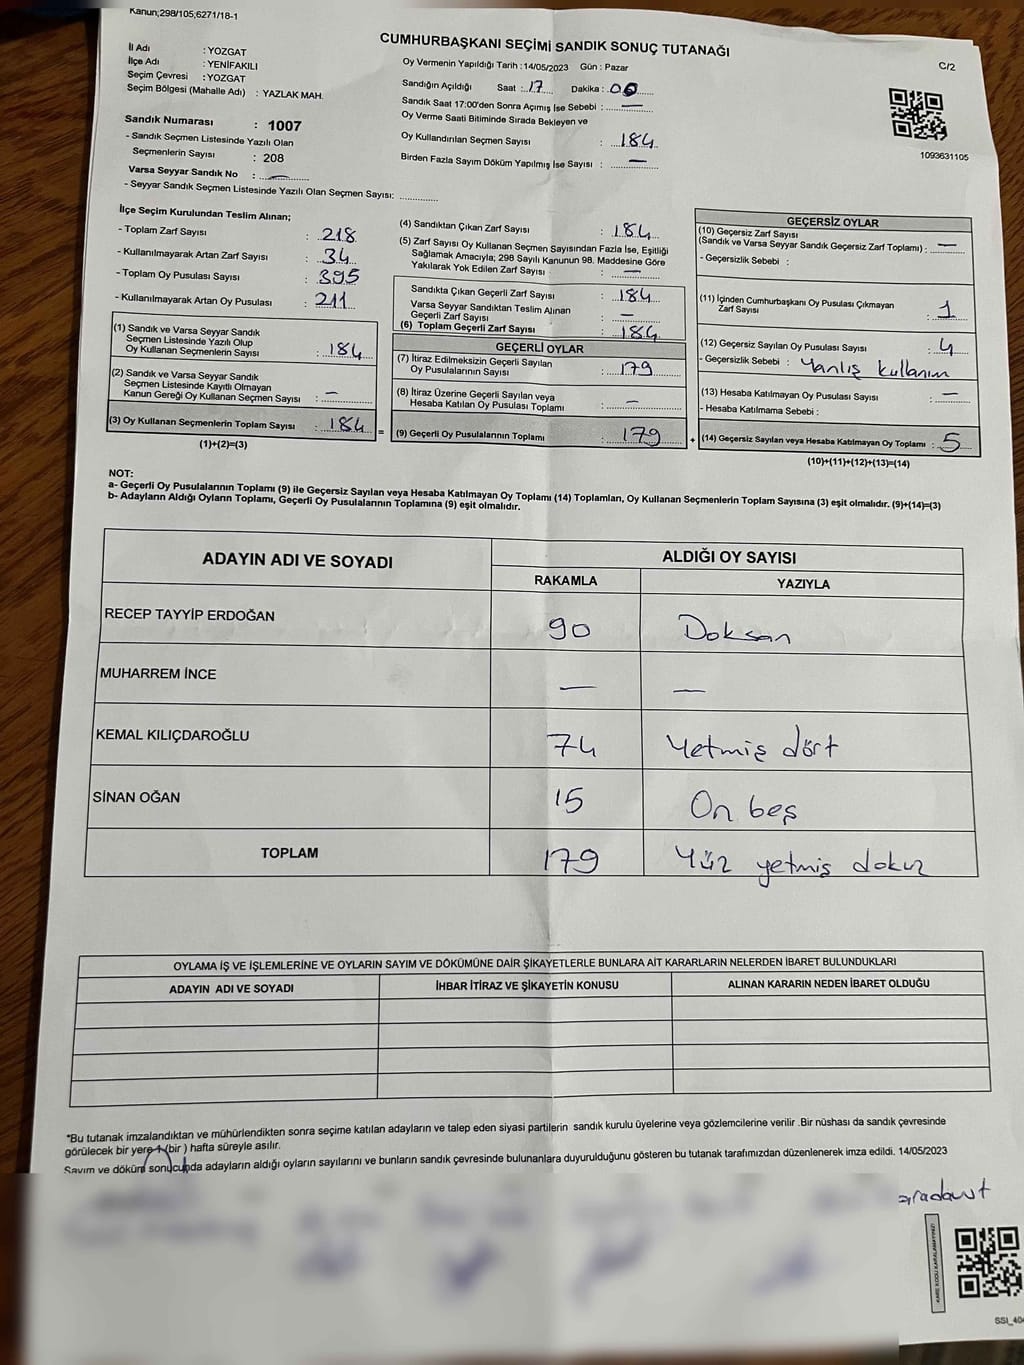 Kanun;298/105;6271/18-1
CUMHURBAŞKANI SEÇİMİ SANDIK SONUÇ TUTANAĞI
C/2
İl Adı : YOZGAT
İlçe Adı : YENİFAKILI
Seçim Çevresi : YOZGAT
Seçim Bölgesi (Mahalle Adı) : YAZLAK MAH.
Sandık Numarası : 1007
- Sandık Seçmen Listesinde Yazılı Olan
Seçmenlerin Sayısı : 208
Varsa Seyyar Sandık No : —
- Seyyar Sandık Seçmen Listesinde Yazılı Olan Seçmen Sayısı:
Oy Vermenin Yapıldığı Tarih : 14/05/2023 Gün : Pazar
Sandığın Açıldığı Saat : 17 Dakika : 00
Sandık Saat 17:00'den Sonra Açımış İse Sebebi : —
Oy Verme Saati Bitiminde Sırada Bekleyen ve
Oy Kullandırılan Seçmen Sayısı : 184
Birden Fazla Sayım Döküm Yapılmış İse Sayısı : —
1093631105
İlçe Seçim Kurulundan Teslim Alınan;
- Toplam Zarf Sayısı : 218
- Kullanılmayarak Artan Zarf Sayısı : 34
- Toplam Oy Pusulası Sayısı : 395
- Kullanılmayarak Artan Oy Pusulası : 211
(1) Sandık ve Varsa Seyyar Sandık
Seçmen Listesinde Yazılı Olup
Oy Kullanan Seçmenlerin Sayısı : 184
(2) Sandık ve Varsa Seyyar Sandık
Seçmen Listesinde Kayıtlı Olmayan
Kanun Gereği Oy Kullanan Seçmen Sayısı : —
(3) Oy Kullanan Seçmenlerin Toplam Sayısı : 184 =
(1)+(2)=(3)
(4) Sandıktan Çıkan Zarf Sayısı : 184
(5) Zarf Sayısı Oy Kullanan Seçmen Sayısından Fazla İse, Eşitliği
Sağlamak Amacıyla; 298 Sayılı Kanunun 98. Maddesine Göre
Yakılarak Yok Edilen Zarf Sayısı : —
Sandıkta Çıkan Geçerli Zarf Sayısı : 184
Varsa Seyyar Sandıktan Teslim Alınan
Geçerli Zarf Sayısı : —
(6) Toplam Geçerli Zarf Sayısı : 184
GEÇERLİ OYLAR
(7) İtiraz Edilmeksizin Geçerli Sayılan
Oy Pusulalarının Sayısı : 179
(8) İtiraz Üzerine Geçerli Sayılan veya
Hesaba Katılan Oy Pusulası Toplamı : —
(9) Geçerli Oy Pusulalarının Toplamı : 179 +
GEÇERSİZ OYLAR
(10) Geçersiz Zarf Sayısı
(Sandık ve Varsa Seyyar Sandık Geçersiz Zarf Toplamı) : —
- Geçersizlik Sebebi :
(11) İçinden Cumhurbaşkanı Oy Pusulası Çıkmayan
Zarf Sayısı : 1
(12) Geçersiz Sayılan Oy Pusulası Sayısı : 4
- Geçersizlik Sebebi : Yanlış kullanım
(13) Hesaba Katılmayan Oy Pusulası Sayısı : —
- Hesaba Katılmama Sebebi :
(14) Geçersiz Sayılan veya Hesaba Katılmayan Oy Toplamı : 5
(10)+(11)+(12)+(13)=(14)
NOT:
a- Geçerli Oy Pusulalarının Toplamı (9) ile Geçersiz Sayılan veya Hesaba Katılmayan Oy Toplamı (14) Toplamları, Oy Kullanan Seçmenlerin Toplam Sayısına (3) eşit olmalıdır. (9)+(14)=(3)
b- Adayların Aldığı Oyların Toplamı, Geçerli Oy Pusulalarının Toplamına (9) eşit olmalıdır.
ADAYIN ADI VE SOYADI ALDIĞI OY SAYISI
RAKAMLA YAZIYLA
RECEP TAYYİP ERDOĞAN 90 Doksan
MUHARREM İNCE — —
KEMAL KILIÇDAROĞLU 74 Yetmiş dört
SİNAN OĞAN 15 On beş
TOPLAM 179 Yüz yetmiş dokuz
OYLAMA İŞ VE İŞLEMLERİNE VE OYLARIN SAYIM VE DÖKÜMÜNE DAİR ŞİKAYETLERLE BUNLARA AİT KARARLARIN NELERDEN İBARET BULUNDUKLARI
ADAYIN ADI VE SOYADI İHBAR İTİRAZ VE ŞİKAYETİN KONUSU ALINAN KARARIN NEDEN İBARET OLDUĞU
*Bu tutanak imzalandıktan ve mühürlendikten sonra seçime katılan adayların ve talep eden siyasi partilerin sandık kurulu üyelerine veya gözlemcilerine verilir .Bir nüshası da sandık çevresinde
görülecek bir yere 1 (bir ) hafta süreyle asılır.
Sayım ve döküm sonucunda adayların aldığı oyların sayılarını ve bunların sandık çevresinde bulunanlara duyurulduğunu gösteren bu tutanak tarafımızdan düzenlenerek imza edildi. 14/05/2023